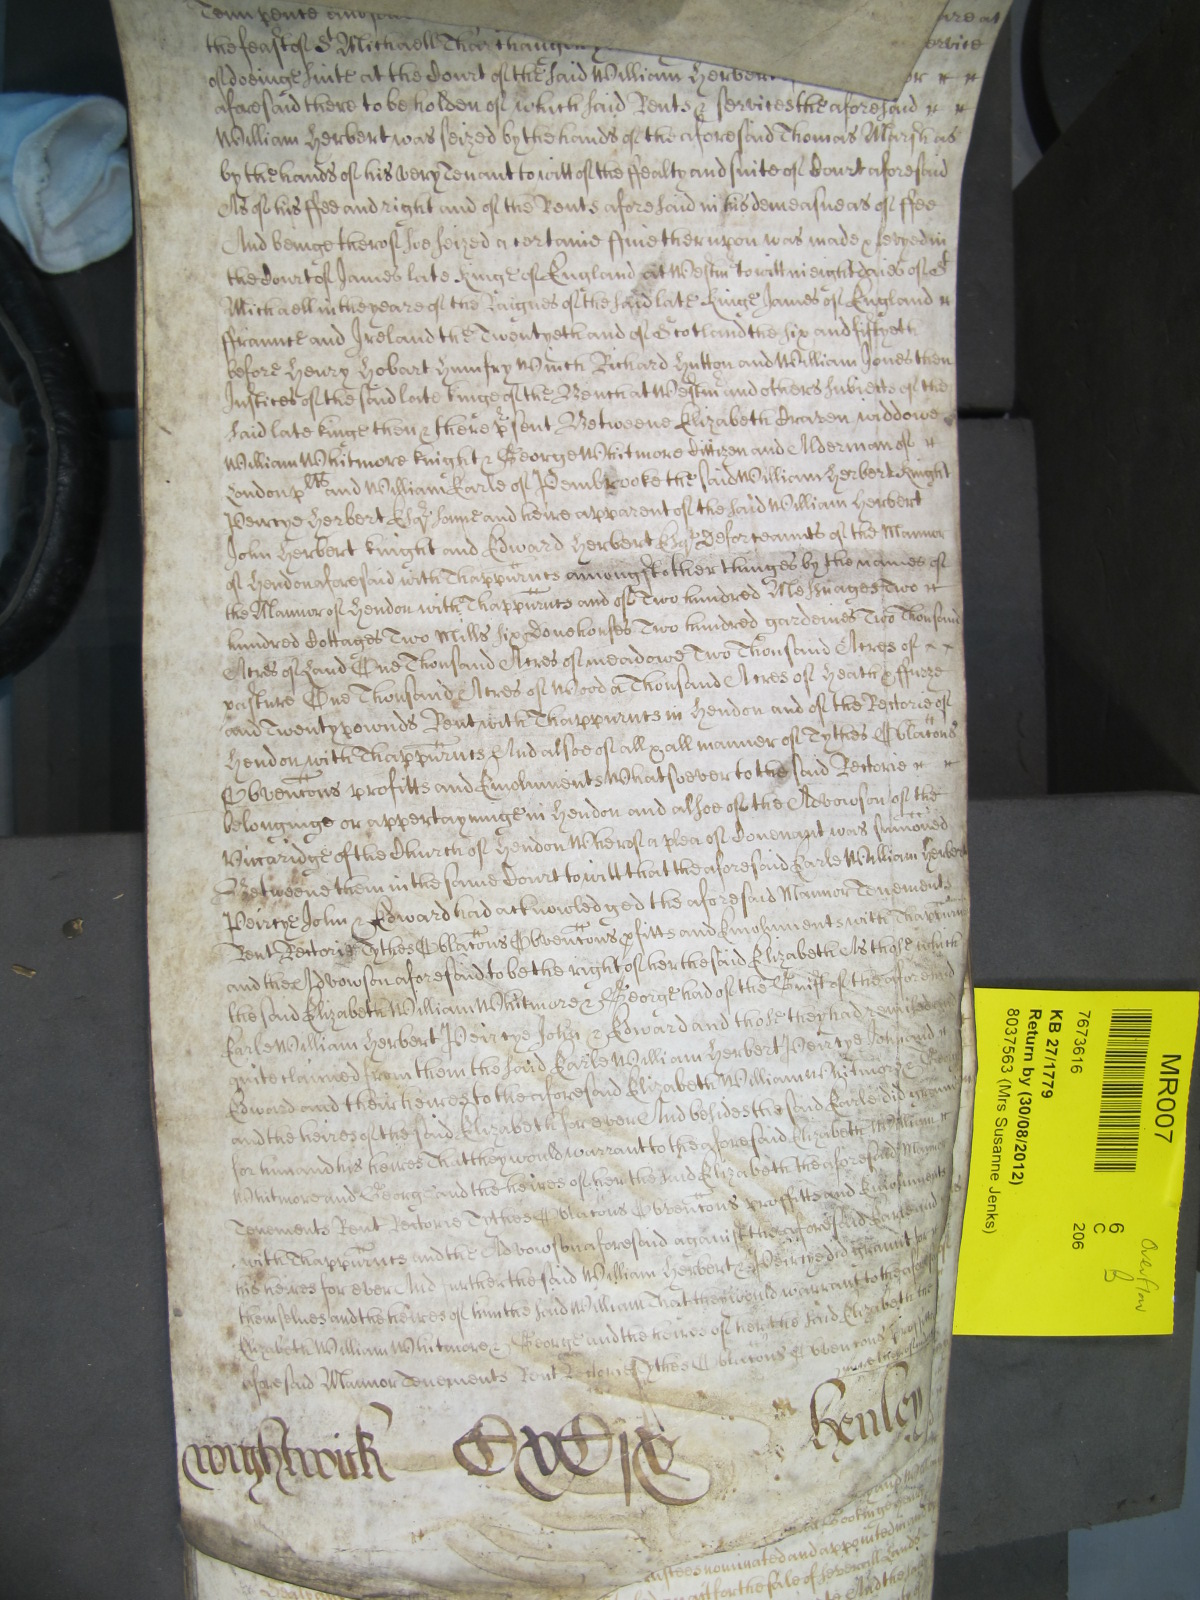 the feast of St Michaell Tharchangell
of doeinge suite at the Court of the said William Herbert
aforesaid there to be holden of which said Rents & services the aforesaid
William Herbert was seized by the hands of the aforesaid Thomas Marsh as
by the hands of his very Tenant to witt of the ffealty and suite of Court aforesaid
As of his ffee and right and of the Rents aforesaid in his demeasne as of ffee
And beinge therof soe seized a certaine ffine therupon was made & levyed in
the Court of James late Kinge of England at Westm to witt in eight daies of St
Michaell in the yeare of the Raignes of the said late Kinge James of England
ffraunce and Ireland the Twentyeth and of Scotland the six and fiftyeth
before Henry Hobart Humfry Winch Richard Hutton and William Jones then
Justices of the said late kinge of the Bench at Westm and others subiects of the
said late kinge then & there psent Betweene Elizabeth Craven widdowe
William Whitmore knight & George Whitmore Cittizen and Alderman of
London plts and William Earle of Pembrooke the said William Herbert knight
Peircye Herbert Esqr sonne and heire apparent of the said William Herbert
John Herbert knight and Edward Herbert Esqr deforceannts of the Mannor
of Hendon aforesaid with Thappurtncs amongst other thinges by the names of
the Mannor of Hendon with Thappurtncs and of Two hundred Messuages Two
hundred Cottages Two Mills six Dovehouses Two hundred gardeines Two Thousand
Acres of Land One Thousand Acres of meadowe Two Thousand Acres of
pasture One Thousand Acres of Wood a Thousand Acres of Heath & ffurze
and Twenty pownds Rent with Thappurtncs in Hendon and of the Rectorie of
Hendon with Thappurtncs And alsoe of all & all manner of Tythes Oblacons
Obvencons profitts and Emoluments whatsoever to the said Rectorie
belonginge or appertayninge in Hendon and alsoe of the Advowson of the
Viccaridge of the Church of Hendon Wherof a plea of Covenant was sumoned
Betweene them in the same Court to witt that the aforesaid Earle William Herbert
Peircye John & Edward had acknowledged the aforesaid Mannor Tenements
Rent Rectorie Tythes Oblacons Obvencons pfitts and Emoluments with Thappurtncs
and the Advowson aforesaid to be the right of her the said Elizabeth As those which
the said Elizabeth William Whitmore & George had of the Guift of the aforesaid
Earle William Herbert Peircye John & Edward and those they had remised and
quite claimed from them the said Earle William Herbert Peircye John and
Edward and their heires to the aforesaid Elizabeth William Whitmore & George
and the heires of the said Elizabeth for ever And besides the said Earle did graunt
for him and his heires That they would warrant to the aforesaid Elizabeth William
Whitmore and George and the heires of her the said Elizabeth the aforesaid Mannor
Tenements Rent Rectorie Tythes Oblacons Obvencons proffitts and Emoluments
with Thappurtncs and the Advowson aforesaid against the aforesaid Earle and
his heires for ever And further the said William Herbert & Peircye did graunt for
themselves and the heires of him the said William That they would warrant to the aforesaid
Elizabeth William Whitmore & George and the heires of her the said Elizabeth the
aforesaid Mannor Tenements Rent Rectorie Tythes Oblacons Obvencons
wightwick
Henley
nominated and appointed
for the sale of severall Lands
MR007
7673616
KB 27/1779
Return by (30/08/2012)
8037563 (Mrs Susanne Jenks)
6
C
206
Overflow
B